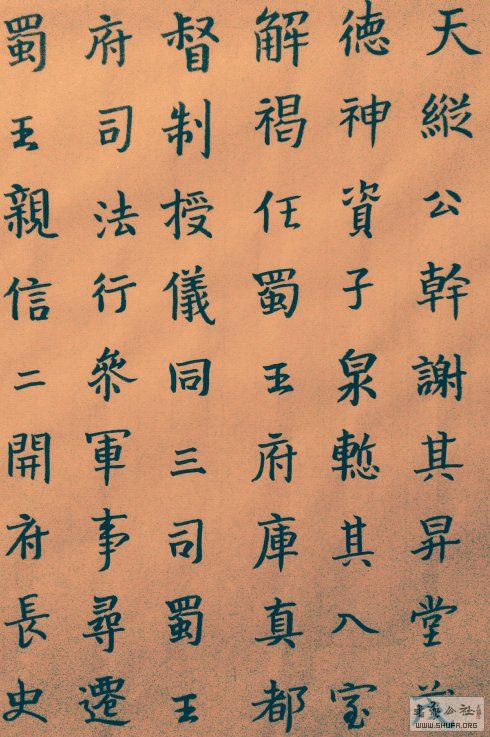 天縱公幹謝其昇堂
徳神資子泉慙其入室
解褐任蜀王府庫真都
督制授儀同三司蜀王
府司法行叅軍事尋遷
蜀王親信二開府長史
WWW.SHUFA.ORG